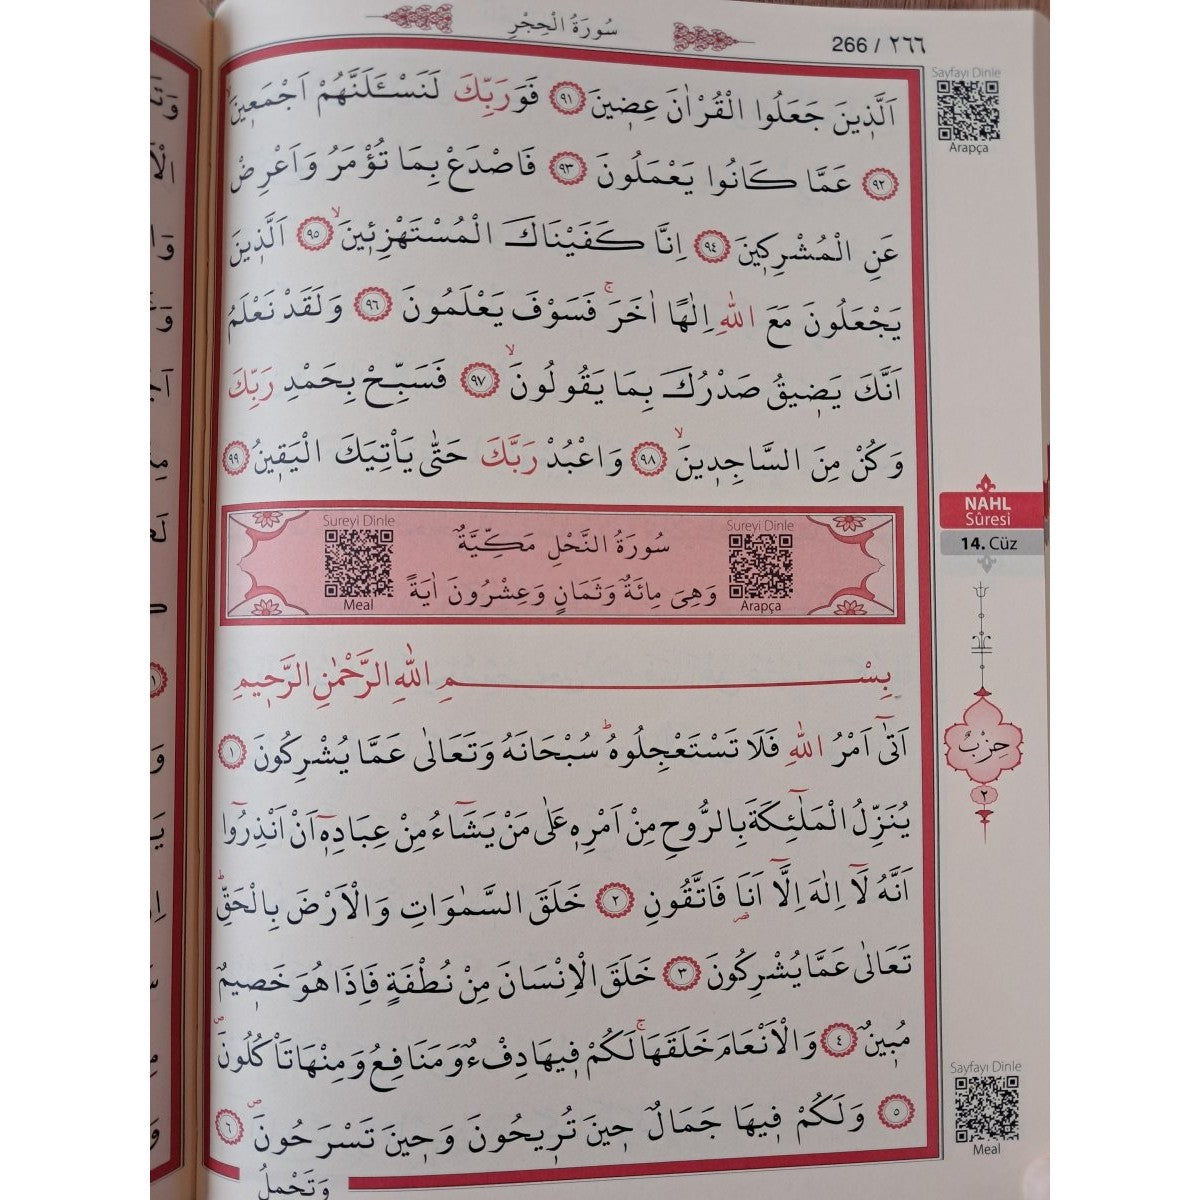 سُورَةُ الْحِجْرِ
266 / ٢٦٦
Sayfayı Dinle
Arapça
اَلَّذ۪ينَ جَعَلُوا الْقُرْاٰنَ عِض۪ينَ ﴿٩١﴾ فَوَرَبِّكَ لَنَسْـَٔلَنَّهُمْ اَجْمَع۪ينَۙ
﴿٩٢﴾ عَمَّا كَانُوا يَعْمَلُونَ ﴿٩٣﴾ فَاصْدَعْ بِمَا تُؤْمَرُ وَاَعْرِضْ
عَنِ الْمُشْرِك۪ينَ ﴿٩٤﴾ اِنَّا كَفَيْنَاكَ الْمُسْتَهْزِئ۪ينَۙ ﴿٩٥﴾ اَلَّذ۪ينَ
يَجْعَلُونَ مَعَ اللّٰهِ اِلٰهًا اٰخَرَۚ فَسَوْفَ يَعْلَمُونَ ﴿٩٦﴾ وَلَقَدْ نَعْلَمُ
اَنَّكَ يَض۪يقُ صَدْرُكَ بِمَا يَقُولُونَۙ ﴿٩٧﴾ فَسَبِّحْ بِحَمْدِ رَبِّكَ
وَكُنْ مِنَ السَّاجِد۪ينَۙ ﴿٩٨﴾ وَاعْبُدْ رَبَّكَ حَتّٰى يَأْتِيَكَ الْيَق۪ينُ ﴿٩٩﴾
NAHL
Sûresi
14. Cüz
Sureyi Dinle
Arapça
سُورَةُ النَّحْلِ مَكِّيَّةٌ
وَهِىَ مِائَةٌ وَثَمَانٍ وَعِشْرُونَ اٰيَةً
Sureyi Dinle
Meal
بِسْمِ اللّٰهِ الرَّحْمٰنِ الرَّح۪يمِ
اَتٰٓى اَمْرُ اللّٰهِ فَلَا تَسْتَعْجِلُوهُۜ سُبْحَانَهُ وَتَعَالٰى عَمَّا يُشْرِكُونَ ﴿١﴾
حِزْبٌ
٢
يُنَزِّلُ الْمَلٰٓئِكَةَ بِالرُّوحِ مِنْ اَمْرِه۪ عَلٰى مَنْ يَشَٓاءُ مِنْ عِبَادِه۪ٓ اَنْ اَنْذِرُٓوا
اَنَّهُ لَٓا اِلٰهَ اِلَّٓا اَنَا۬ فَاتَّقُونِ ﴿٢﴾ خَلَقَ السَّمٰوَاتِ وَالْاَرْضَ بِالْحَقِّۜ
تَعَالٰى عَمَّا يُشْرِكُونَ ﴿٣﴾ خَلَقَ الْاِنْسَانَ مِنْ نُطْفَةٍ فَاِذَا هُوَ خَص۪يمٌ
مُب۪ينٌ ﴿٤﴾ وَالْاَنْعَامَ خَلَقَهَاۚ لَكُمْ ف۪يهَا دِفْءٌ وَمَنَافِعُ وَمِنْهَا تَأْكُلُونَۖ
﴿٥﴾ وَلَكُمْ ف۪يهَا جَمَالٌ ح۪ينَ تُر۪يحُونَ وَح۪ينَ تَسْرَحُونَۖ ﴿٦﴾
وَتَحْمِلُ
Sayfayı Dinle
Meal